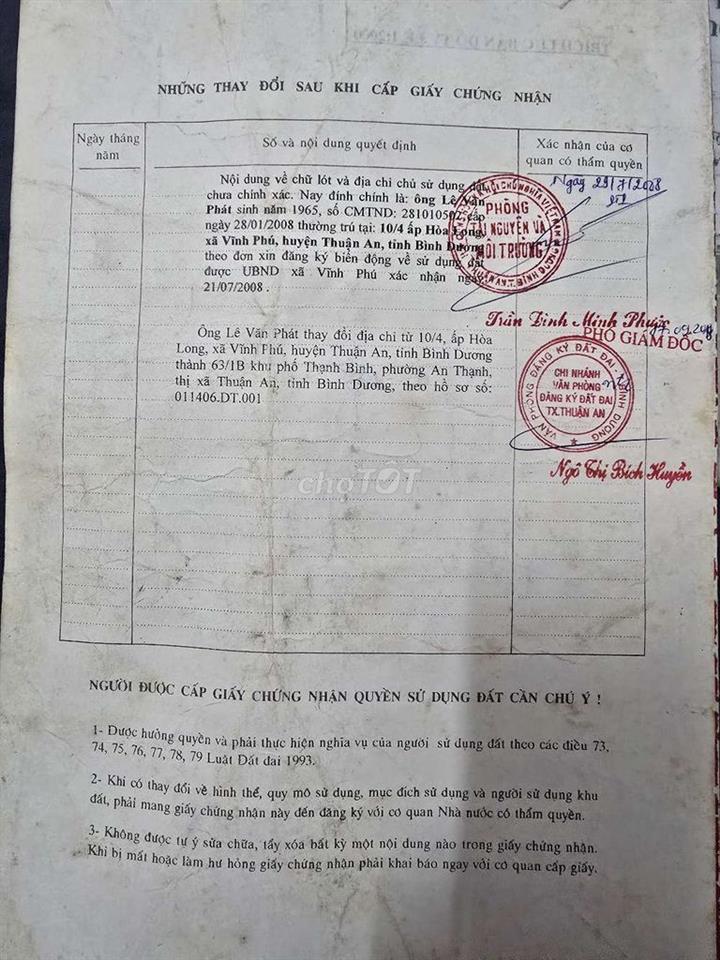 NHỮNG THAY ĐỔI SAU KHI CẤP GIẤY CHỨNG NHẬN
Ngày tháng năm
Số và nội dung quyết định
Xác nhận của cơ quan có thẩm quyền
Nội dung về chữ lót và địa chỉ chủ sử dụng đất
chưa chính xác. Nay đính chính là: ông Lê Văn
Phát sinh năm 1965, số CMTND: 281010502 cấp
ngày 28/01/2008 thường trú tại: 10/4 ấp Hòa Long,
xã Vĩnh Phú, huyện Thuận An, tỉnh Bình Dương
theo đơn xin đăng ký biến động về sử dụng đất
được UBND xã Vĩnh Phú xác nhận ngày
21/07/2008 .
Ngày 29/7/2008
PHÒNG
TÀI NGUYÊN VÀ
MÔI TRƯỜNG
Trần Đình Minh Phước
Ông Lê Văn Phát thay đổi địa chỉ từ 10/4, ấp Hòa
Long, xã Vĩnh Phú, huyện Thuận An, tỉnh Bình Dương
thành 63/1B khu phố Thạnh Bình, phường An Thạnh,
thị xã Thuận An, tỉnh Bình Dương, theo hồ sơ số:
011406.DT.001
PHÓ GIÁM ĐỐC
VĂN PHÒNG ĐĂNG KÝ ĐẤT ĐAI BÌNH DƯƠNG
CHI NHÁNH
VĂN PHÒNG
ĐĂNG KÝ ĐẤT ĐAI
TX.THUẬN AN
Ngô Thị Bích Huyền
choTỐT
NGƯỜI ĐƯỢC CẤP GIẤY CHỨNG NHẬN QUYỀN SỬ DỤNG ĐẤT CẦN CHÚ Ý !
1- Được hưởng quyền và phải thực hiện nghĩa vụ của người sử dụng đất theo các điều 73,
74, 75, 76, 77, 78, 79 Luật Đất đai 1993.
2- Khi có thay đổi về hình thể, quy mô sử dụng, mục đích sử dụng và người sử dụng khu
đất, phải mang giấy chứng nhận này đến đăng ký với cơ quan Nhà nước có thẩm quyền.
3- Không được tự ý sửa chữa, tẩy xóa bất kỳ một nội dung nào trong giấy chứng nhận.
Khi bị mất hoặc làm hư hỏng giấy chứng nhận phải khai báo ngay với cơ quan cấp giấy.